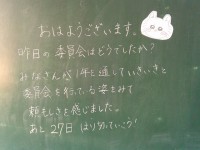 おはようございます。
昨日の委員会はどうでしたか?
みなさんが1年を通していきいきと
委員会を行っている姿をみて
頼もしさを感じました。
あと27日 はりきっていこう!